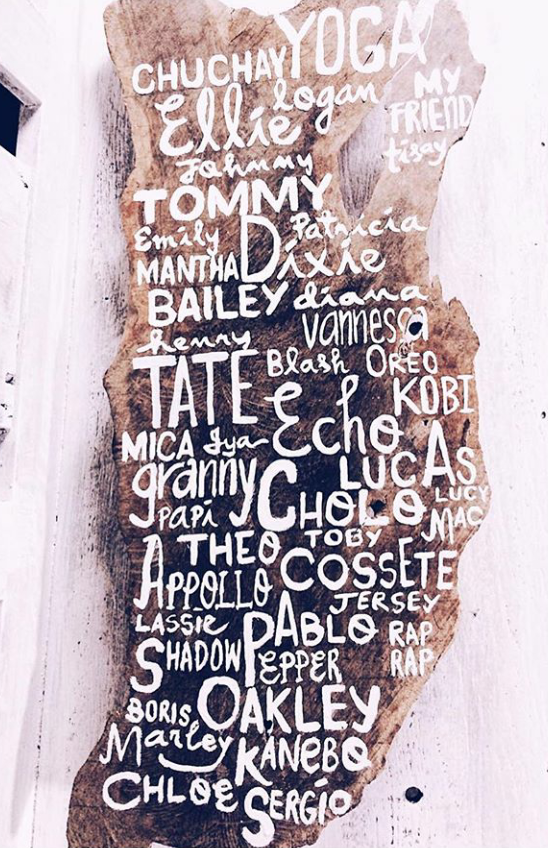 YOGA
CHUCHAY
logan
MY
FRIEND
tisay
Ellie
Johnny
TOMMY
Emily
Patricia
MANTHA
Dixie
BAILEY
diana
henry
vannessa
TATE
Blash
OREO
KOBI
Echo
MICA
Iya
LUCAS
granny
papi
CHOLO
LUCY
MAC
THEO
TOBY
APPOLLO
COSSETE
JERSEY
LASSIE
PABLO
RAP
RAP
SHADOW
PEPPER
OAKLEY
BORIS,
Marley
KANEBO
CHLOE
SERGIO